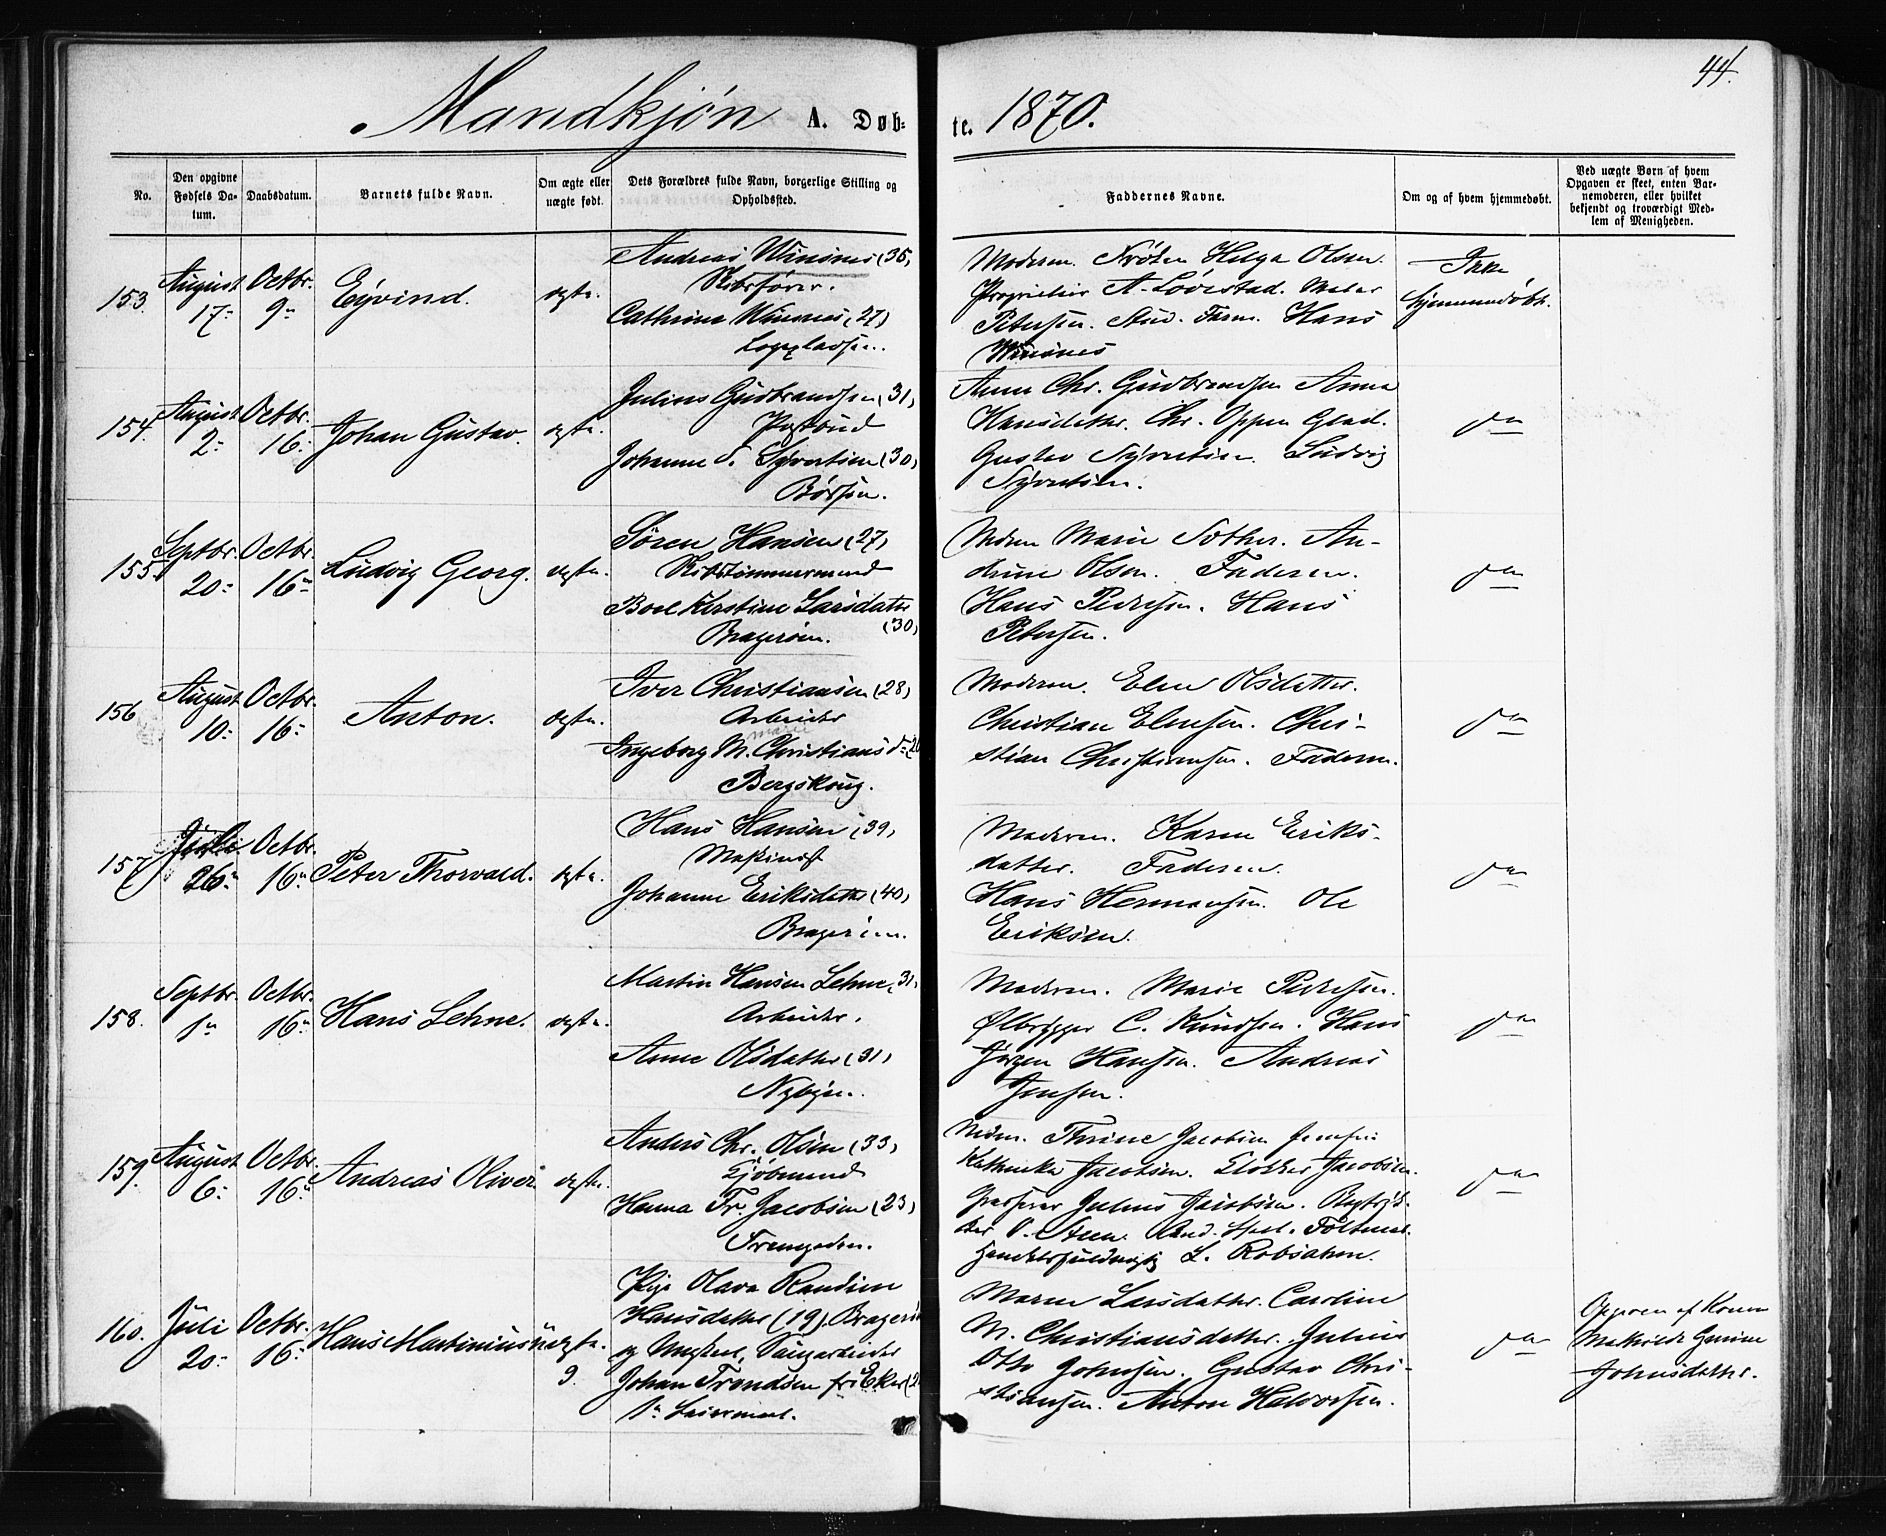 Mandkjøn A. Døb-
te. 1870.
44.
No.
Den opgivne
Fødsels Da-
tum.
Daabsdatum.
Barnets fulde Navn.
Om ægte eller
uægte født.
Dets Forældres fulde Navn, borgerlige Stilling og
Opholdssted.
Faddernes Navne.
Om og af hvem hjemmedøbt.
Ved uægte Børn af hvem
Opgaven er skeet, enten Bar-
nemoderen, eller hvilket
bekjendt og troværdigt Med-
lem af Menigheden.
153.
August
17-
Octbr.
9-
Eyvind.
ægte.
Andreas Winsnes (35)
Skibsfører.
Cathrine Winsnes (27)
Moderen. Frøken Helga Olsen.
Proprietær A. Løvestad. Maler
Petersen. Stud. Farm. Hans
Winsnes
Ikke
hjemmedøbt.
154.
August
2-
Octbr.
16-
Johan Gustav.
ægte.
Julius Gudbrandsen (31)
Postbud
Johanne S. Syvertsen (30)
Børsen.
Anne Chr. Gudbrandsen Anna
Hansdatter. Chr. Oppen Glad.
Gustav Syvertsen. Ludvig
Syvertsen.
do
155.
Septbr.
20-
Octbr.
16-
Ludvig Georg.
ægte.
Søren Hansen (27)
Skibstømmermand
Boel Kirstine Larsdatter
(30)
Bragerøen.
Moderen Marie Sother. An-
drine Olsen. Faderen.
Hans Pedersen. Hans
Petersen.
do
156
August
10-
Octbr.
16-
Anton.
ægte.
Iver Christiansen (28)
Arbeider
Marie
Ingeborg M. Christiansd-
Bergskoug.
Moderen. Elen Olsdatter.
Christian Elensen. Chri-
stian Christiansen. Faderen.
do
157
Juli
26-
Octbr.
16-
Peter Thorvald.
ægte.
Hans Hansen (39)
Maskinist
Johanne Eriksdatter (40)
Bragerøen.
Moderen. Karen Eriks-
datter. Faderen.
Hans Hermansen. Ole
Eriksen.
do
158.
Septbr.
1-
Octbr.
16-
Hans Lehne.
ægte.
Martin Hansen Lehne (31)
Arbeider.
Anne Olsdatter (31)
Nybyen.
Moderen. Marie Pedersen.
Ølbrygger C. Knudsen. Hans
Jørgen Hansen. Andreas
Jensen.
do
159.
August
6-
Octbr.
16-
Andreas Oliver
ægte.
Anders Chr. Olsen (33)
Kjøbmand
Hanna Fr. Jacobsen (23)
Tremgaden.
Thrine Jacobsen
Kathinka Jacobsen. Klokker Jacobsen.
Julius Jacobsen.
L. Robsahm.
do
160.
Juli
20-
Octbr.
16-
Hans Martinius
uægte.
Pige Olava Randine
Hansdatter (19) Bragerøen
og Ungkarl, Saugarbeider
Johan Trondsen fra Eker
1- Leiermaal.
Maren Larsdatter. Caroline
M. Christiansdatter. Julius
Otto Johnsen. Gustav Chri-
stiansen. Anton Halvorsen.
do
Opgaven af Konen
Mathilde Gurine
Johnsdatter.